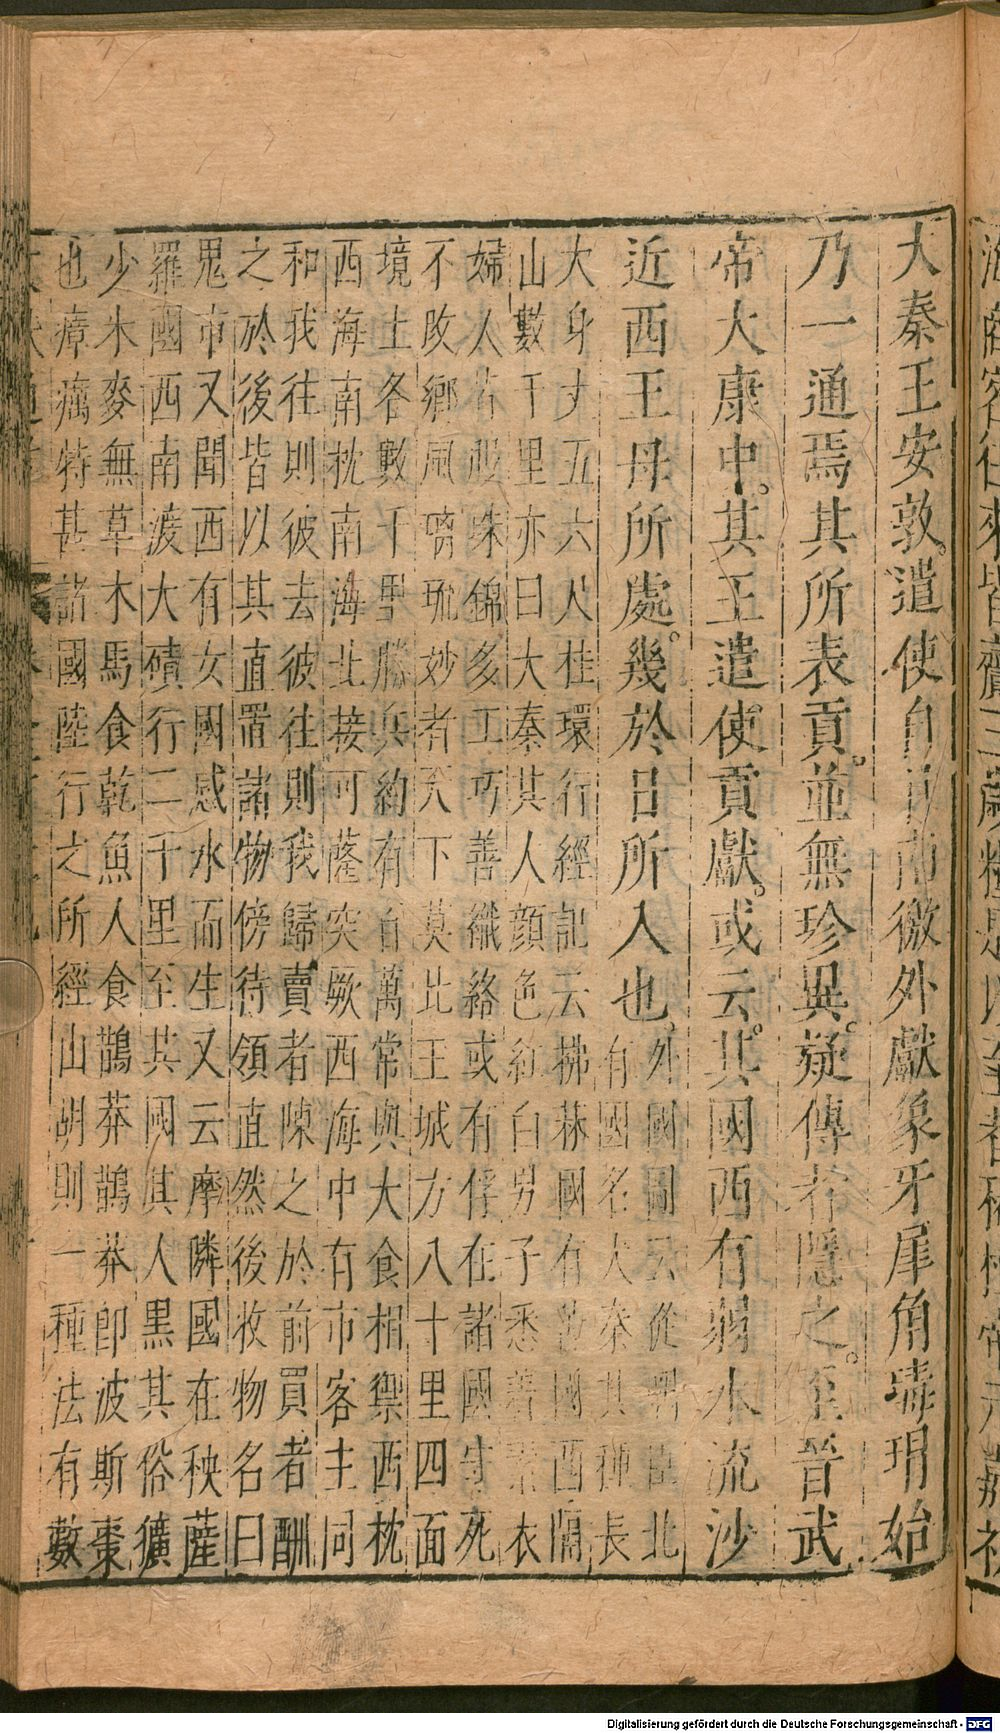 大秦王安敦。遣使自日南徼外獻象牙犀角瑇瑁始
乃一通焉其所表貢。並無珍異。疑傳者隱之。至晉武
帝大康中。其王遣使貢獻。或云。其國西有弱水流沙
近西王母所處。幾於日所入也。外國圖云從隅巨北
有國名大秦其種長
大身丈五六人桂環行經記云拂菻國有苫國西隔
山數千里亦曰大秦其人顏色紅白男子悉著素衣
婦人皆服珠錦多工巧善織絡或有俘在諸國守死
不改鄉風琉妙者天下莫比王城方八十里四面
境土各數千里勝兵約有百萬常與大食相禦西枕
西海南枕南海北接可薩突厥西海中有市客主同
和我往則彼去彼往則我歸賣者陳之於前買者酬
之於後皆以其直置諸物傍待領直然後收物名曰
鬼市又聞西有女國感水而生又云摩隣國在秧薩
羅國西南渡大磧行二千里至其國其人黑其俗獷
少米麥無草木馬食乾魚人食鶻莽鶻莽即波斯棗
也瘴癘特甚諸國陸行之所經山胡則一種法有數
Digitalisierung gefördert durch die Deutsche Forschungsgemeinschaft - DFG